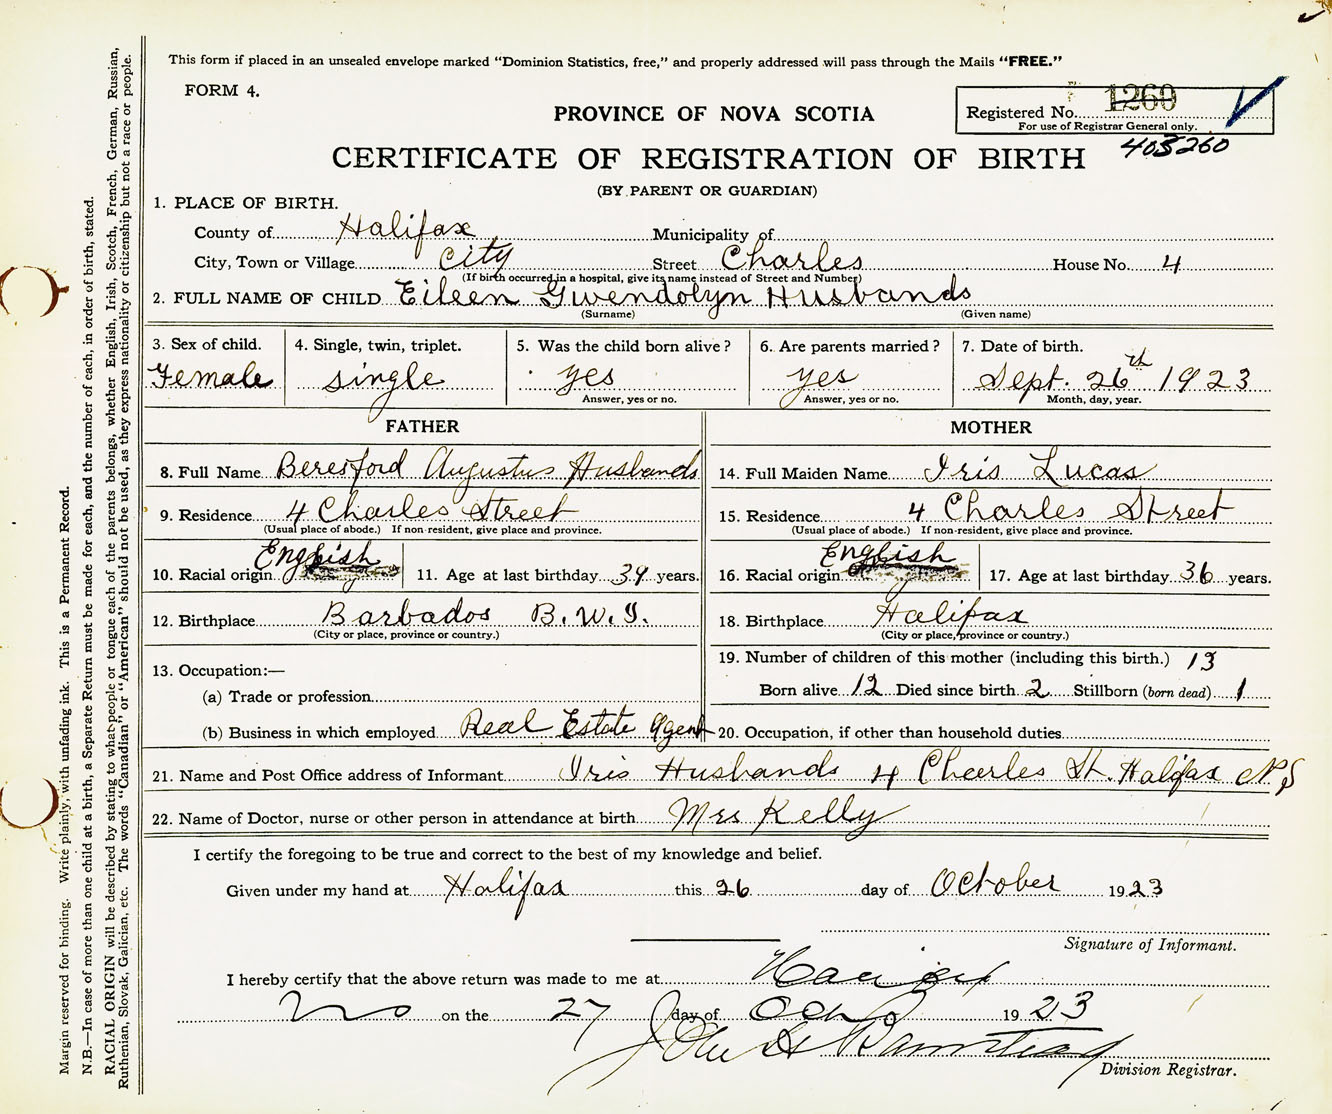 This form if placed in an unsealed envelope marked "Dominion Statistics, free," and properly addressed will pass through the Mails "FREE."
FORM 4.
PROVINCE OF NOVA SCOTIA
Registered No. 1260
For use of Registrar General only.
403260
CERTIFICATE OF REGISTRATION OF BIRTH
(BY PARENT OR GUARDIAN)
1. PLACE OF BIRTH.
County of Halifax Municipality of
City, Town or Village City Street Charles House No. 4
(If birth occurred in a hospital, give its name instead of Street and Number)
2. FULL NAME OF CHILD Eileen Gwendolyn Husbands
(Surname) (Given name)
3. Sex of child. 4. Single, twin, triplet. 5. Was the child born alive? 6. Are parents married? 7. Date of birth.
Female single yes yes Sept. 26th 1923
Answer, yes or no. Answer, yes or no. Month, day, year.
FATHER MOTHER
8. Full Name Beresford Augustus Husbands 14. Full Maiden Name Iris Lucas
9. Residence 4 Charles Street 15. Residence 4 Charles Street
(Usual place of abode.) If non-resident, give place and province. (Usual place of abode.) If non-resident, give place and province.
10. Racial origin English 11. Age at last birthday 39 years. 16. Racial origin English 17. Age at last birthday 36 years.
12. Birthplace Barbados B.W.I. 18. Birthplace Halifax
(City or place, province or country.) (City or place, province or country.)
13. Occupation:— 19. Number of children of this mother (including this birth.) 13
(a) Trade or profession Born alive 12 Died since birth 2 Stillborn (born dead) 1
(b) Business in which employed Real Estate Agent 20. Occupation, if other than household duties
21. Name and Post Office address of Informant Iris Husbands 4 Charles St. Halifax N S
22. Name of Doctor, nurse or other person in attendance at birth Mrs Kelly
I certify the foregoing to be true and correct to the best of my knowledge and belief.
Given under my hand at Halifax this 26 day of October 1923
Signature of Informant.
I hereby certify that the above return was made to me at Halifax
on the 27 day of Oct 1923
John
Division Registrar.
Margin reserved for binding. Write plainly, with unfading ink. This is a Permanent Record.
N.B.—In case of more than one child at a birth, a Separate Return must be made for each, and the number of each, in order of birth, stated.
RACIAL ORIGIN will be described by stating to what people or tongue each of the parents belongs, whether English, Irish, Scotch, French, German, Russian,
Ruthenian, Slovak, Galician, etc. The words "Canadian" or "American" should not be used, as they express nationality or citizenship but not a race or people.